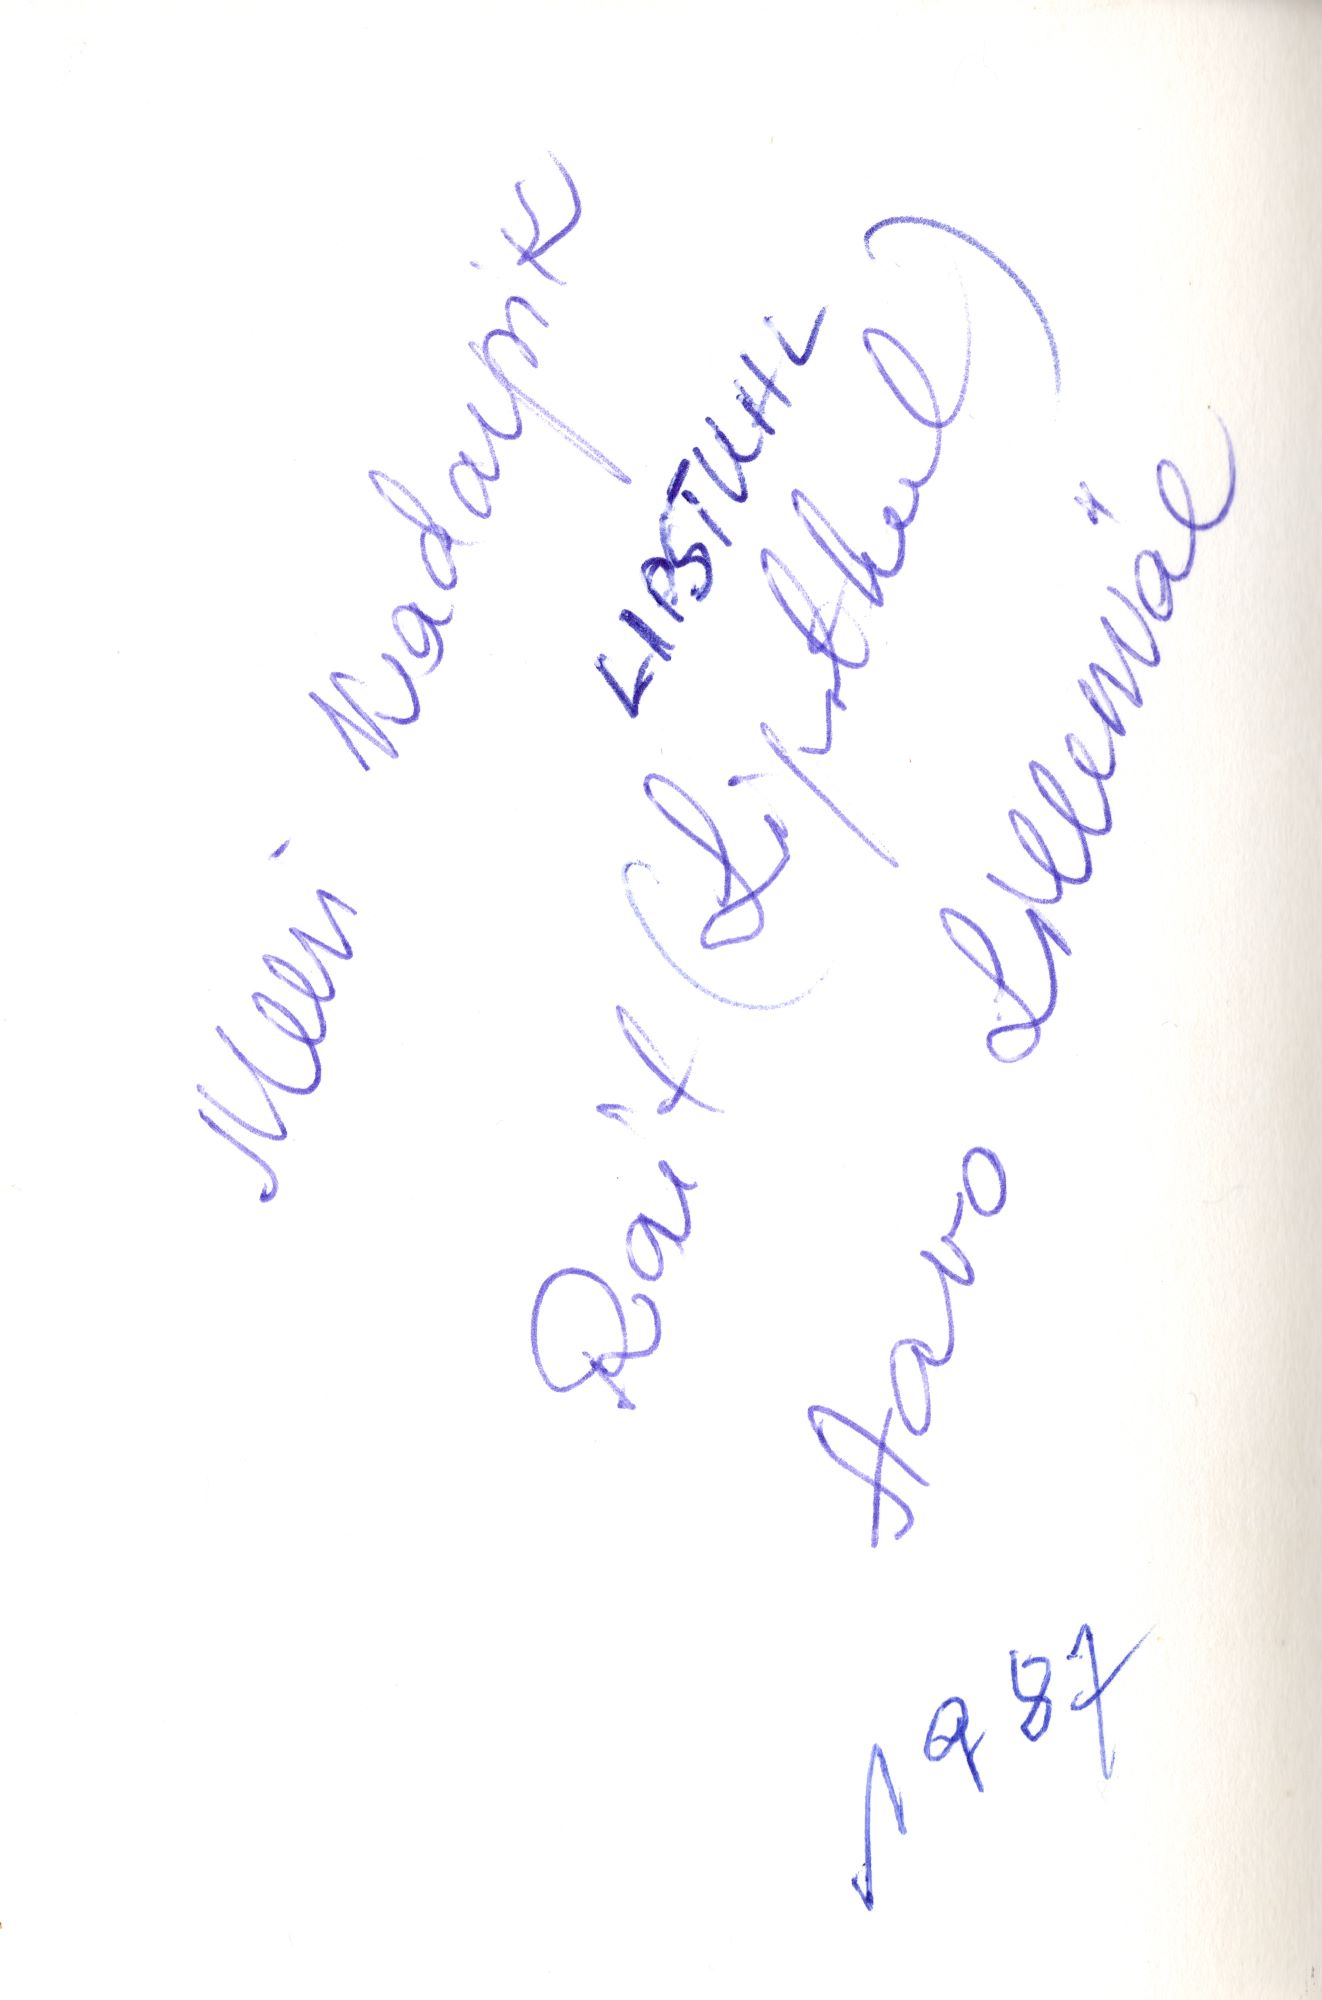 Meeri Maadapik
LIPSTUHL
Rait (Lipsthul)
Aavo
1987